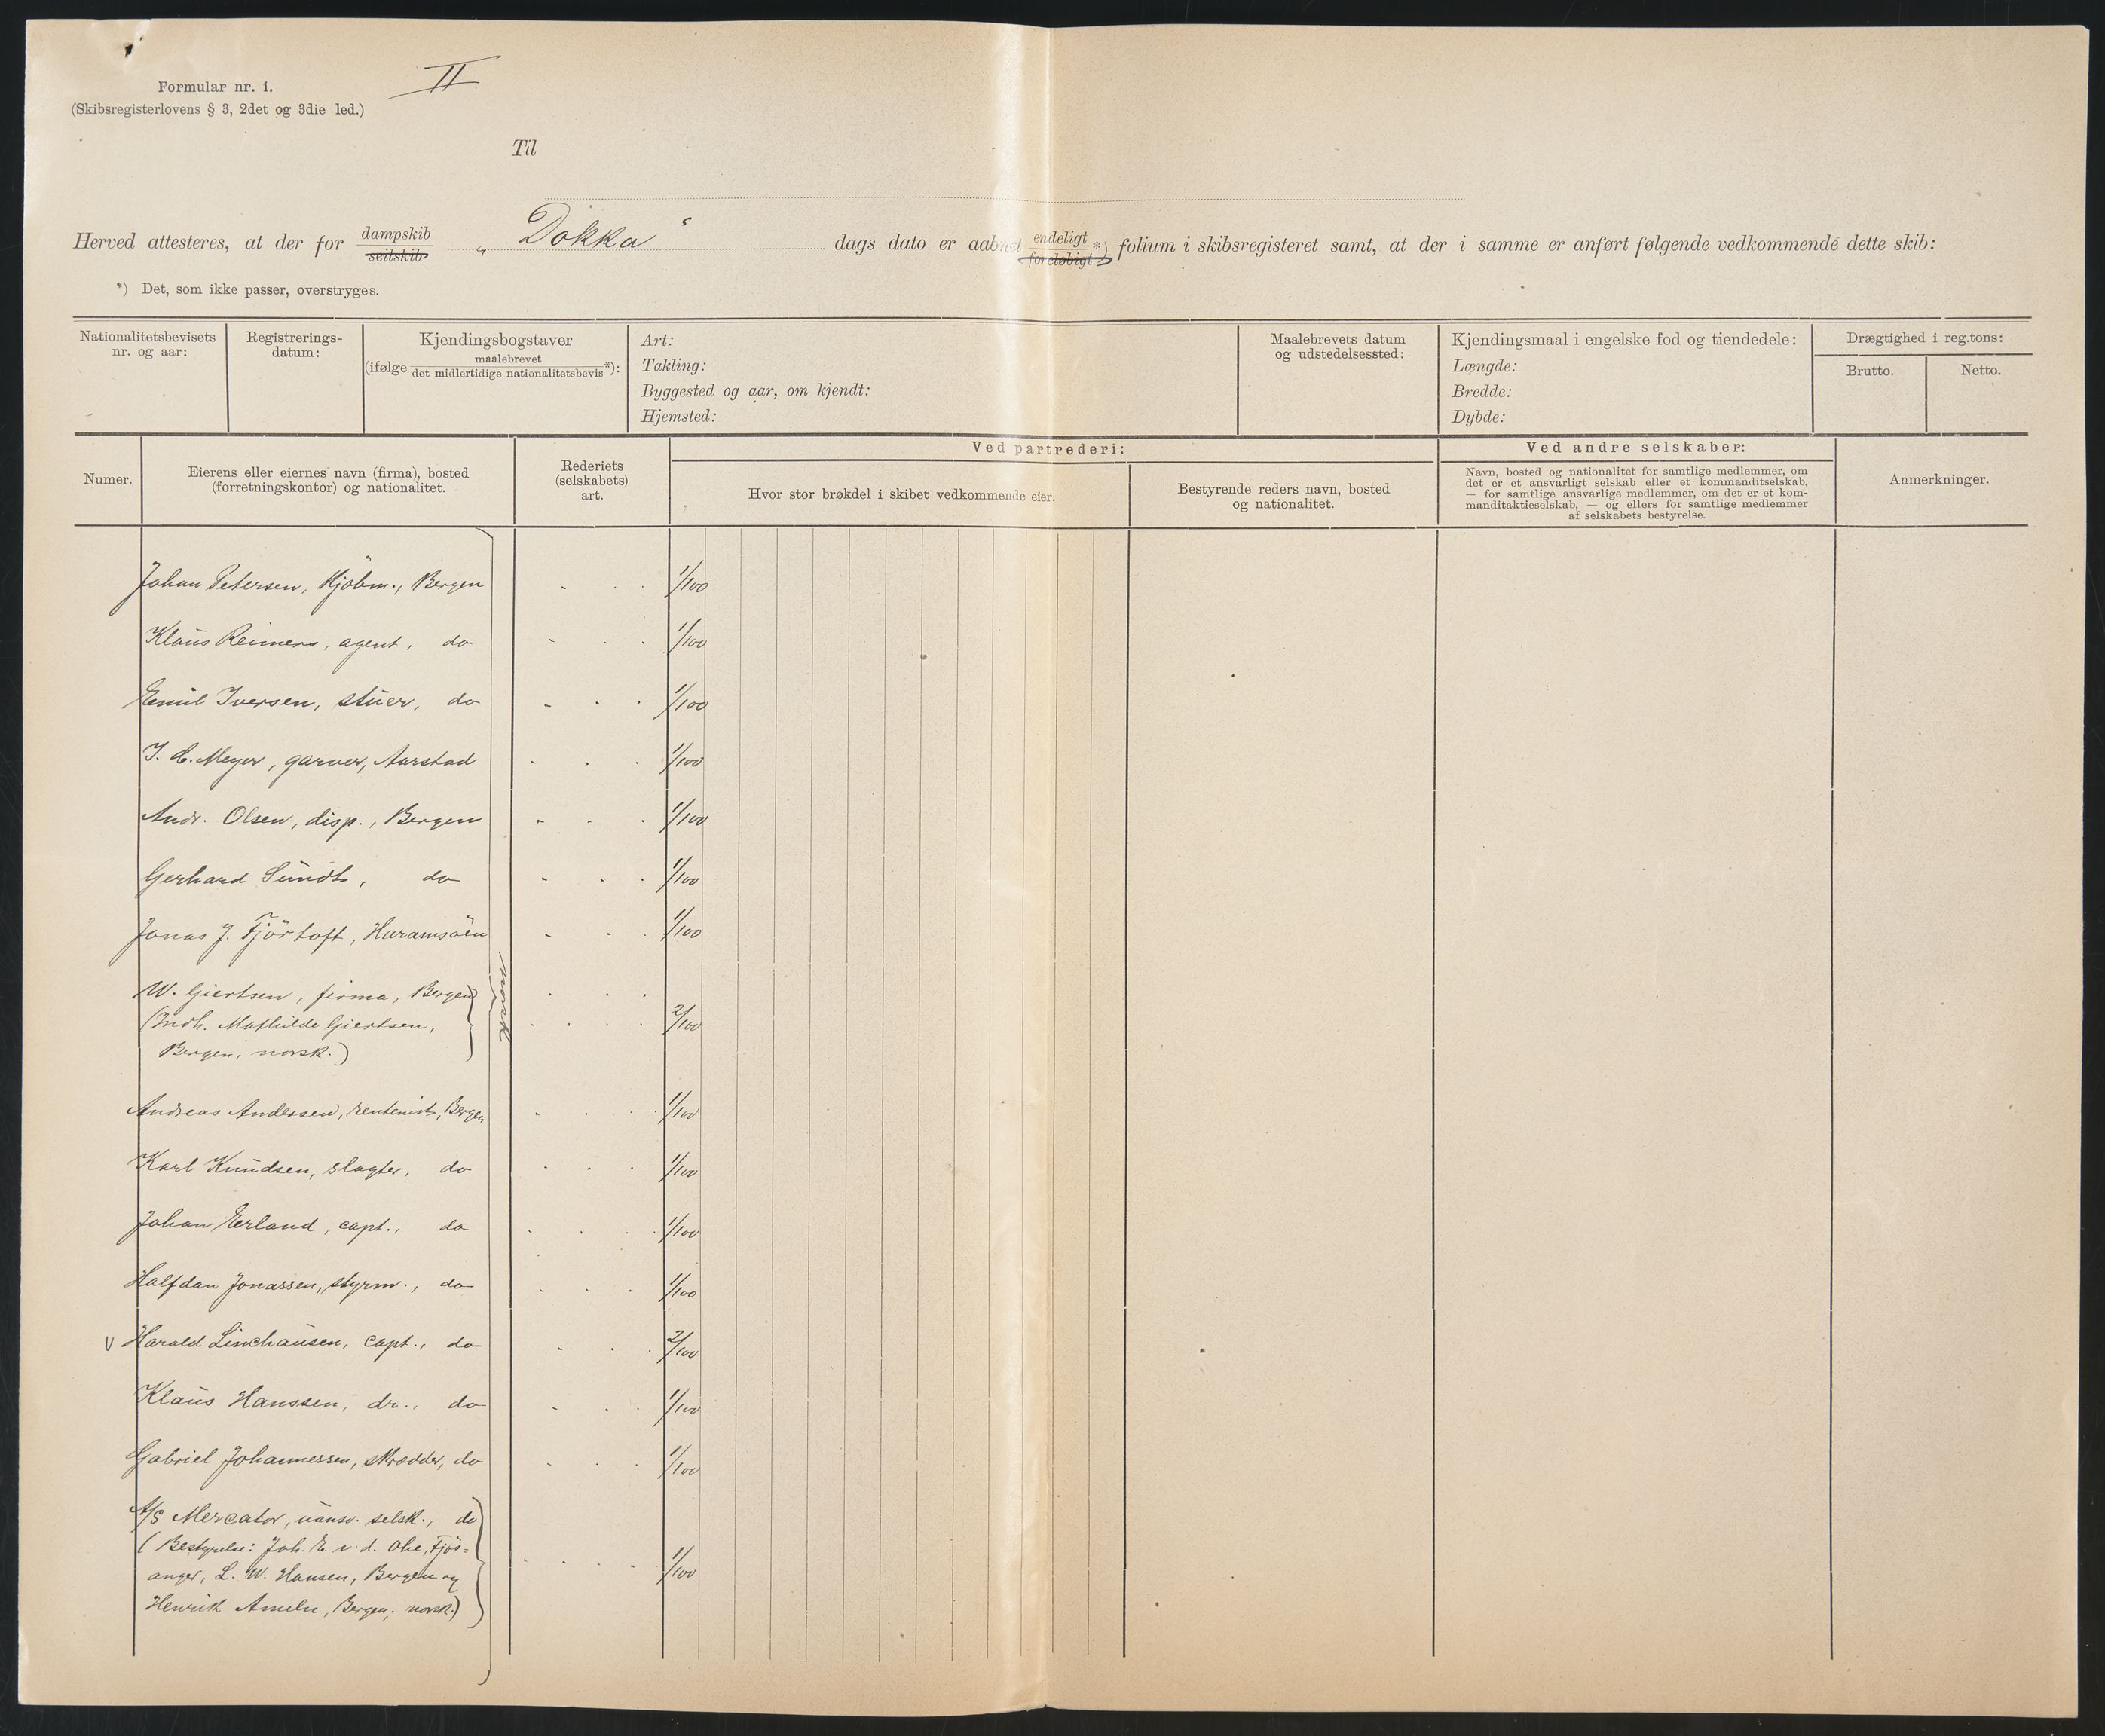 Formular nr. 1.
(Skibsregisterlovens § 3, 2det og 3die led.)
II
Til
Herved attesteres, at der for dampskib seilskib „Dokka“ dags dato er aabnet endeligt foreløbigt *) folium i skibsregisteret samt, at der i samme er anført følgende vedkommende dette skib:
*) Det, som ikke passer, overstryges.
Nationalitetsbevisets
nr. og aar:
Registrerings-
datum:
Kjendingsbogstaver
(ifølge maalebrevet det midlertidige nationalitetsbevis *):
Art:
Takling:
Byggested og aar, om kjendt:
Hjemsted:
Maalebrevets datum
og udstedelsessted:
Kjendingsmaal i engelske fod og tiendedele:
Længde:
Bredde:
Dybde:
Drægtighed i reg.tons:
Brutto.
Netto.
Numer.
Eierens eller eiernes navn (firma), bosted
(forretningskontor) og nationalitet.
Rederiets
(selskabets)
art.
Ved partrederi:
Hvor stor brøkdel i skibet vedkommende eier.
Bestyrende reders navn, bosted
og nationalitet.
Ved andre selskaber:
Navn, bosted og nationalitet for samtlige medlemmer, om
det er et ansvarligt selskab eller et kommanditselskab,
— for samtlige ansvarlige medlemmer, om det er et kom-
manditaktieselskab, — og ellers for samtlige medlemmer
af selskabets bestyrelse.
Anmerkninger.
Johan Petersen, Kjöbm., Bergen 1/100
Klaus Reimers, agent, do 1/100
Emil Iversen, stuer, do 1/100
J. C. Meyer, garver, Aarstad 1/100
Andr. Olsen, disp., Bergen 1/100
Gerhard Sundt, do 1/100
Jonas J. Fjörtoft, Haramsöen 1/100
W. Giertsen, firma, Bergen
(Indh. Mathilde Giertsen, 2/100
Bergen, norsk.)
norsk
Andreas Andersen, rentenist, Bergen 1/100
Karl Knudsen, slagter, do 1/100
Johan Erland, capt., do 1/100
Halfdan Jonassen, styrm., do 1/100
v Harald Linchausen, capt., do 2/100
Klaus Hanssen, dr., do 1/100
Gabriel Johannessen, skrædder, do 1/100
A/S Mercator, uansv. selsk., do
(Bestyrelse: Joh. E. v. d. Ohe, Fjös-
anger, L. W. Hansen, Bergen og 1/100
Henrik Ameln, Bergen, norsk.)